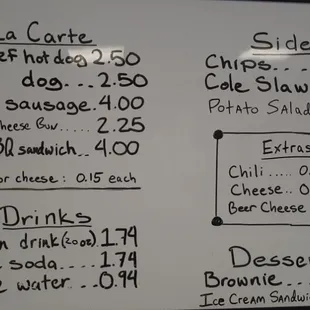 La Carte
hot dog 2.50
dog... 2.50
sausage. 4.00
Cheese Bun..... 2.25
sandwich.. 4.00
or cheese: 0.15 each
Drinks
drink (20oz) 1.74
soda.... 1.74
water... 0.94
Side
Chips...
Cole Slaw
Potato Salad
Extras
Chili ..... 0.
Cheese.. 0.
Beer Cheese
Desse
Brownie...
Ice Cream Sandwic